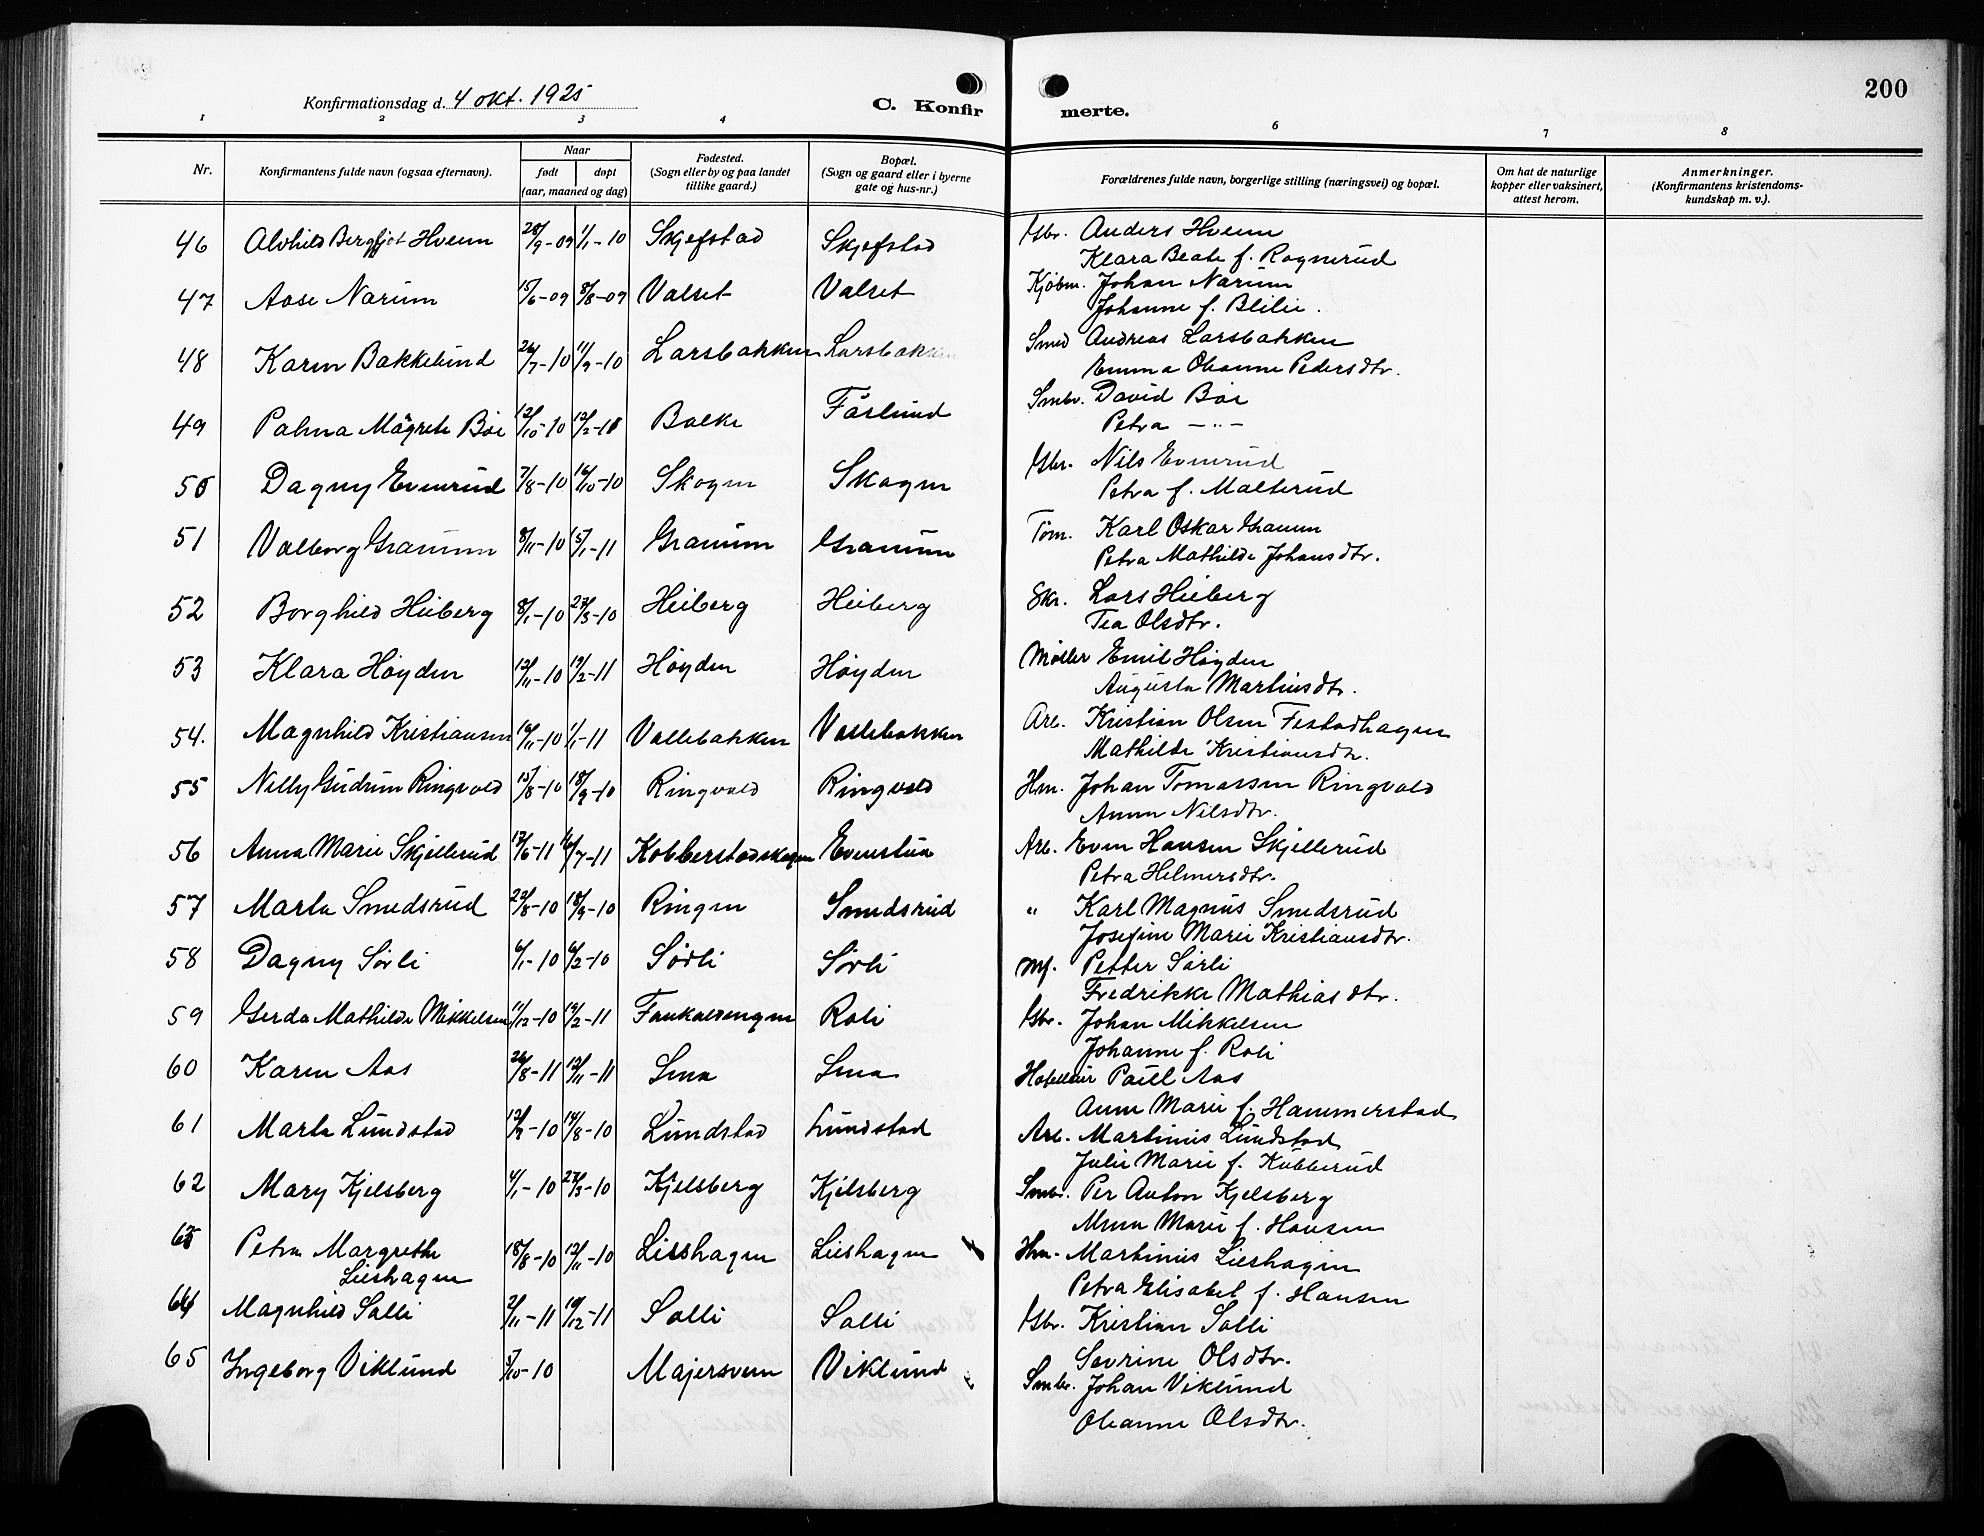 200
Konfirmationsdag d. 4 okt. 1925
C. Konfirmerte.
1 2 3 4 5 6 7 8
Nr.
Konfirmantens fulde navn (ogsaa efternavn).
Naar
født døpt
(aar, maaned og dag)
Fødested.
(Sogn eller by og paa landet
tillike gaard.)
Bopæl.
(Sogn og gaard eller i byerne
gate og hus-nr.)
Forældrenes fulde navn, borgerlige stilling (næringsvei) og bopæl.
Om hat de naturlige
kopper eller vaksinert,
attest herom.
Anmerkninger.
(Konfirmantens kristendoms-
kundskap m. v.).
46 Alvhild Bergljot Hveem 28/9-09 1/1-10 Skjefstad Skjefstad Gbr. Anders Hveem
Klara Beate f. Rognerud
47 Aase Narum 15/6-09 8/8-09 Valset Valset Kjøbm. Johan Narum
Johanne f. Blilie.
48 Karen Bakkelund 26/7-10 11/9-10 Larsbakken Larsbakken Smed Andreas Larsbakken
Emma Oleanne Pedersdtr.
49 Palma Magrete Bøe 12/10-10 12/2-11 Balke Fårlund Smbr. David Bøe
Petra -"-
50 Dagny Evenrud 7/8-10 16/10-10 Skogen Skogen Gbr. Nils Evenrud
Petra f. Malterud
51 Valborg Granum 8/11-10 15/1-11 Granum Granum Tøm. Karl Oskar Granum
Petra Mathilde Johansdtr.
52 Borghild Heiberg 8/1-10 27/3-10 Heiberg Heiberg Skr. Lars Heiberg
Tea Olsdtr.
53 Klara Høyden 12/11-10 19/2-11 Høyden Høyden Møller Emil Høyden
Augusta Martinsdtr.
54. Magnhild Kristiansen 10/11-10 1/1-11 Vallebakken Vallebakken Arb. Kristian Olsen Festadhagen
Mathilde Kristiansdtr.
55 Nelly Gudrun Ringvold 15/8-10 18/9-10 Ringvold Ringvold Hm. Johan Tomassen Ringvold
Anna Nilsdtr.
56 Anna Marie Skjellerud 17/6-11 16/7-11 Kobberstadskogen Evenstua Arb. Even Hansen Skjellerud
Petra Helmersdtr.
57 Marta Smedsrud 22/8-10 18/9-10 Ringen Smedsrud " Karl Magnus Smedsrud
Josefine Marie Kristiansdtr.
58 Dagny Sørli 6/1-10 6/2-10 Sørli Sørli Mf. Petter Sørli
Fredrikke Mathiasdtr.
59 Gerda Mathilde Mikkelsen 11/12-10 12/2-11 Faukaldengen Roli Gbr. Johan Mikkelsen
Johanne f. Roli
60 Karen Aas 26/8-11 12/11-11 Lena Lena Hotelleier Paul Aas
Anne Marie f. Hammerstad
61 Marta Lundstad 12/7-10 14/8-10 Lundstad Lundstad Arb. Martinus Lundstad
Julie Marie f. Kobberud
62 Mary Kjelsberg 4/1-10 27/3-10 Kjelsberg Kjelsberg Smbr. Per Anton Kjelsberg
Anna Marie f. Hansen
63 Petra Margrethe 18/8-10 12/11-10 Lieshagen Lieshagen Hm. Martinus Lieshagen
Lieshagen Petra Elisabet f. Hansen
64 Magnhild Solli 2/11-11 10/12-11 Solli Solli Gbr. Kristian Solli
Sevrine Olsdtr.
65 Ingeborg Viklund 5/10-10 Majersveen Viklund Smbr. Johan Viklund
Oleanne Olsdtr.